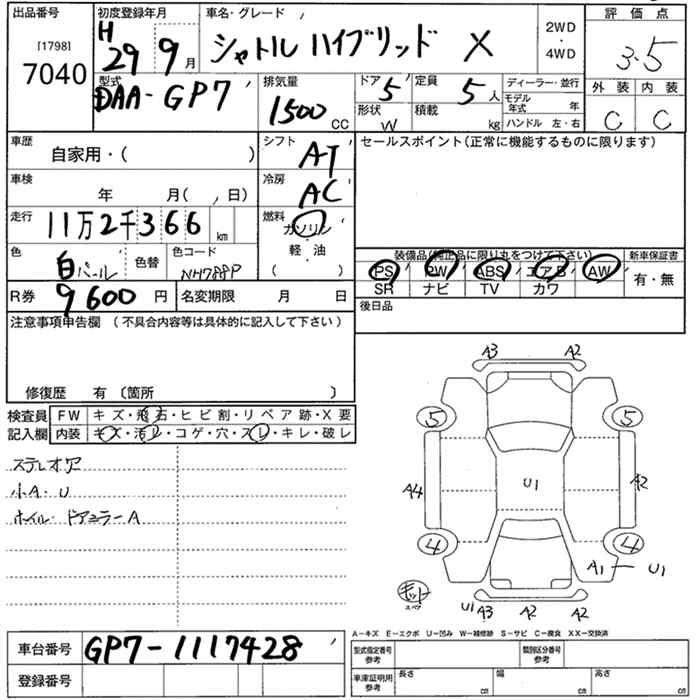 出品番号
[1798]
7040
初度登録年月
H 29 9月
車名・グレード
シャトル ハイブリッド X
2WD
・
4WD
評価点
3.5
外装 内装
C C
型式
DAA-GP7
排気量
1500 CC
ドア
5
定員
5人
形状
W
積載
kg
ディーラー・並行
モデル年式 年
ハンドル 左・右
車歴
自家用・( )
シフト
AT
セールスポイント(正常に機能するものに限ります)
車検
年 月( , 日)
冷房
AC
走行
11万2千366 km
燃料
ガソリン
・
軽・油
( )
色
白パール
色替
色コード
NH788P
装備品(純正品に限り丸をつけて下さい)
PS PW ABS エアB AW
SR ナビ TV カワ
新車保証書
有・無
R券
9600円
名変期限 月 日
後日品
注意事項申告欄 (不具合内容等は具体的に記入して下さい)
修復歴 有 〔箇所 〕
検査員
記入欄
FW キズ・飛石・ヒビ割・リペア跡・X要
内装 キズ・汚レ・コゲ・穴・スレ・キレ・破レ
ステレオア
小A・U
ホイル・ドアミラーA
A3 A2
5 5
A4 U1 A2
4 4
A1 U1
キット
スペア
U1 A3 A2 A2
A-キズ E-エクボ U-凹み W-補修跡 S-サビ C-腐食 XX-交換済
車台番号
GP7-1117428
登録番号
型式指定番号
参考
類別区分番号
参考
車庫証明用
参考
長さ cm
幅 cm
高さ cm